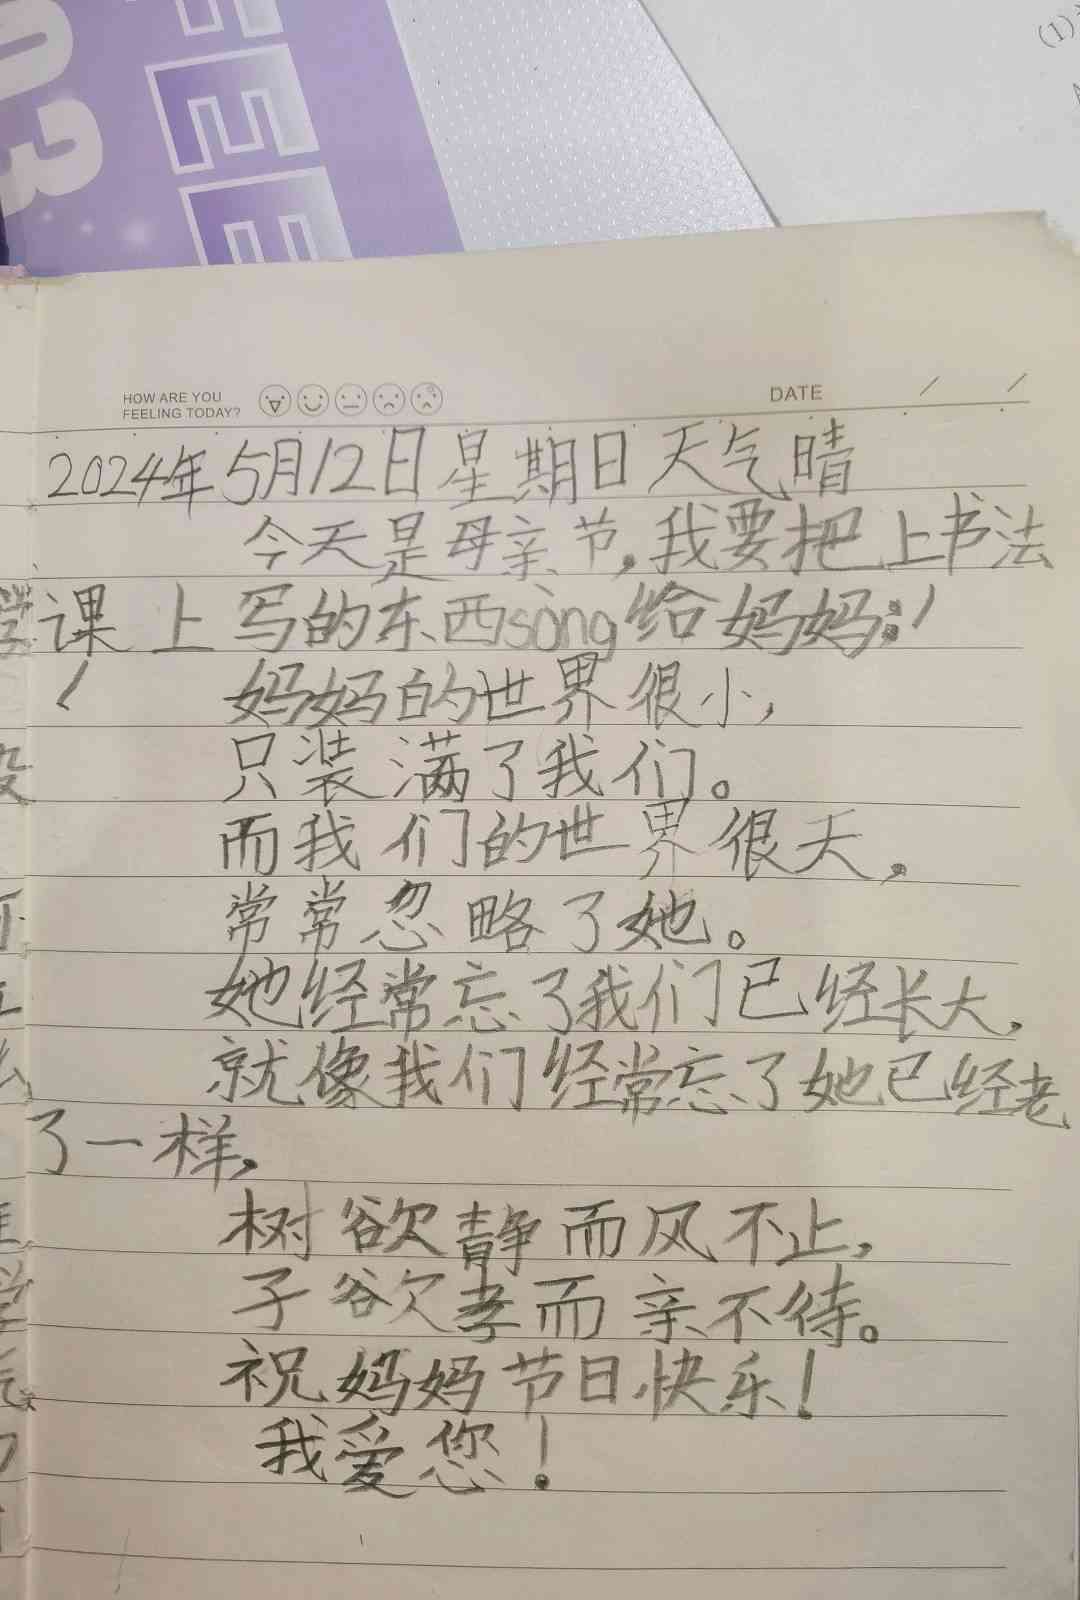 03
EEE
(1)
HOW ARE YOU
FEELING TODAY?
DATE / /
2024年5月12日星期日天气晴
今天是母亲节,我要把上书法
课上写的东西sòng给妈妈:
妈妈的世界很小,
只装满了我们。
而我们的世界很大,
常常忽略了她。
她经常忘了我们已经长大,
就像我们经常忘了她已经老
了一样,
树欲静而风不止,
子欲孝而亲不待。
祝妈妈节日快乐!
我爱您!